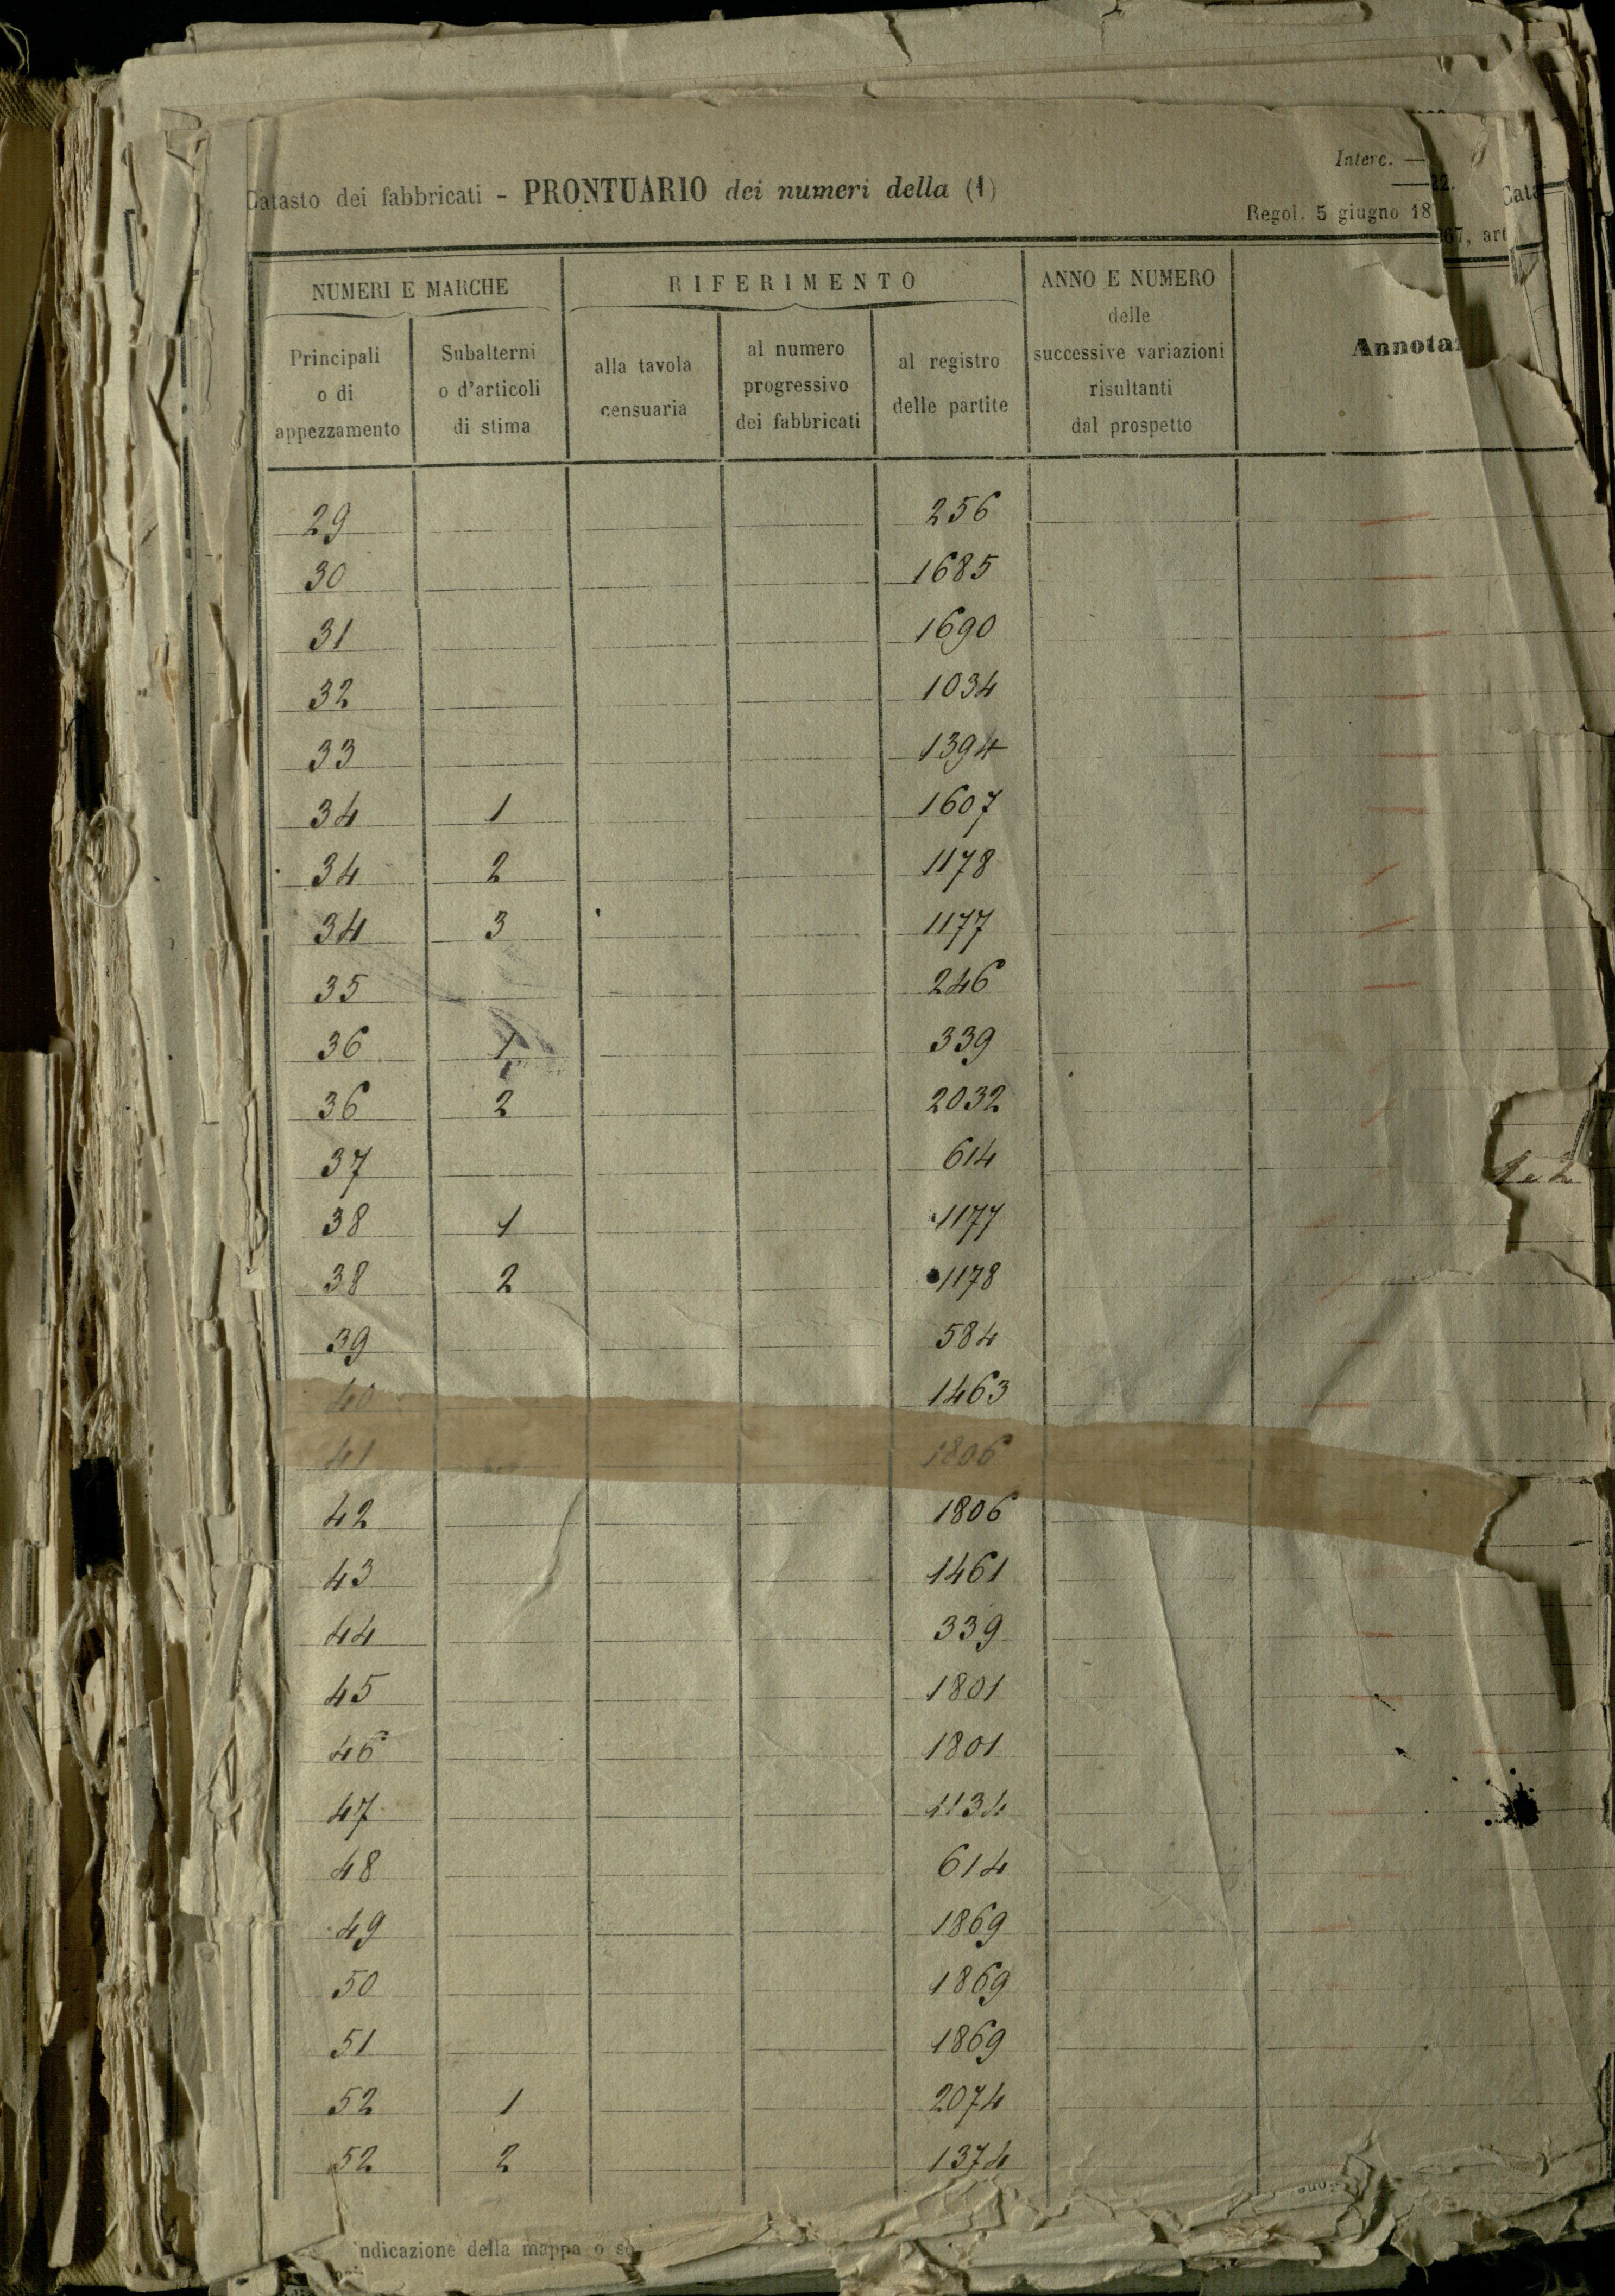 Interc. —
Catasto dei fabbricati - PRONTUARIO dei numeri della (1)
22.
Cata
Regol. 5 giugno 18
67, art
NUMERI E MARCHE
RIFERIMENTO
ANNO E NUMERO
delle
successive variazioni
risultanti
dal prospetto
Principali
o di
appezzamento
Subalterni
o d'articoli
di stima
alla tavola
censuaria
al numero
progressivo
dei fabbricati
al registro
delle partite
29 256
30 1685
31 1690
32 1034
33 1394
34 1 1607
34 2 1178
34 3 1177
35 246
36 1 339
36 2 2032
37 614
38 1 1177
38 2 1178
39 584
40 1463
41 1806
42 1806
43 1461
44 339
45 1801
46 1801
47 1134
48 614
49 1869
50 1869
51 1869
52 1 2074
52 2 1374
ndicazione della mappa o se